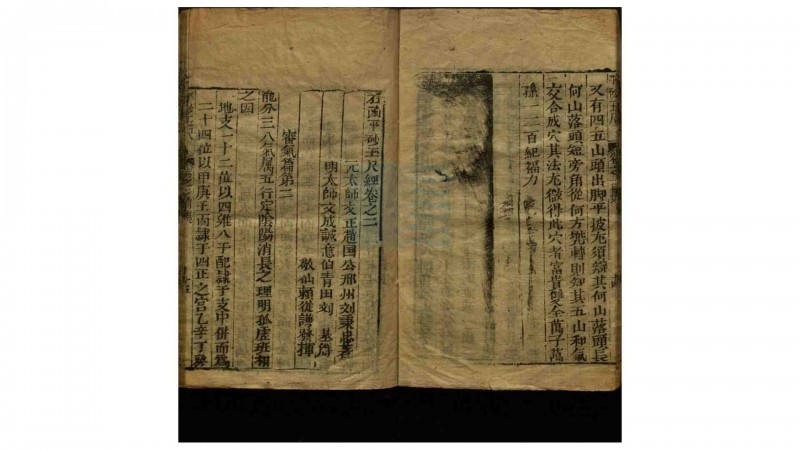 又有四五山頭出脚平坡尤須辯其何山落頭長
何山落頭短旁角從何方兠轉則知其五山和氣
交合成穴其法尤微得此穴者富貴雙全萬子萬
孫一二百紀福力
石函平砂玉尺經卷之二
元太師文正趙国公邢州刘秉忠著
明太師文成誠意伯青田刘基
敬仙賴從謙發揮
審氣篇第二
龍分三八氣属五行定陰陽消長之理明孤虛班相
之因
地支一十二位以四維八干配隷于支中併而爲
二十四位以甲庚壬丙隷于四正之宮乙辛丁癸